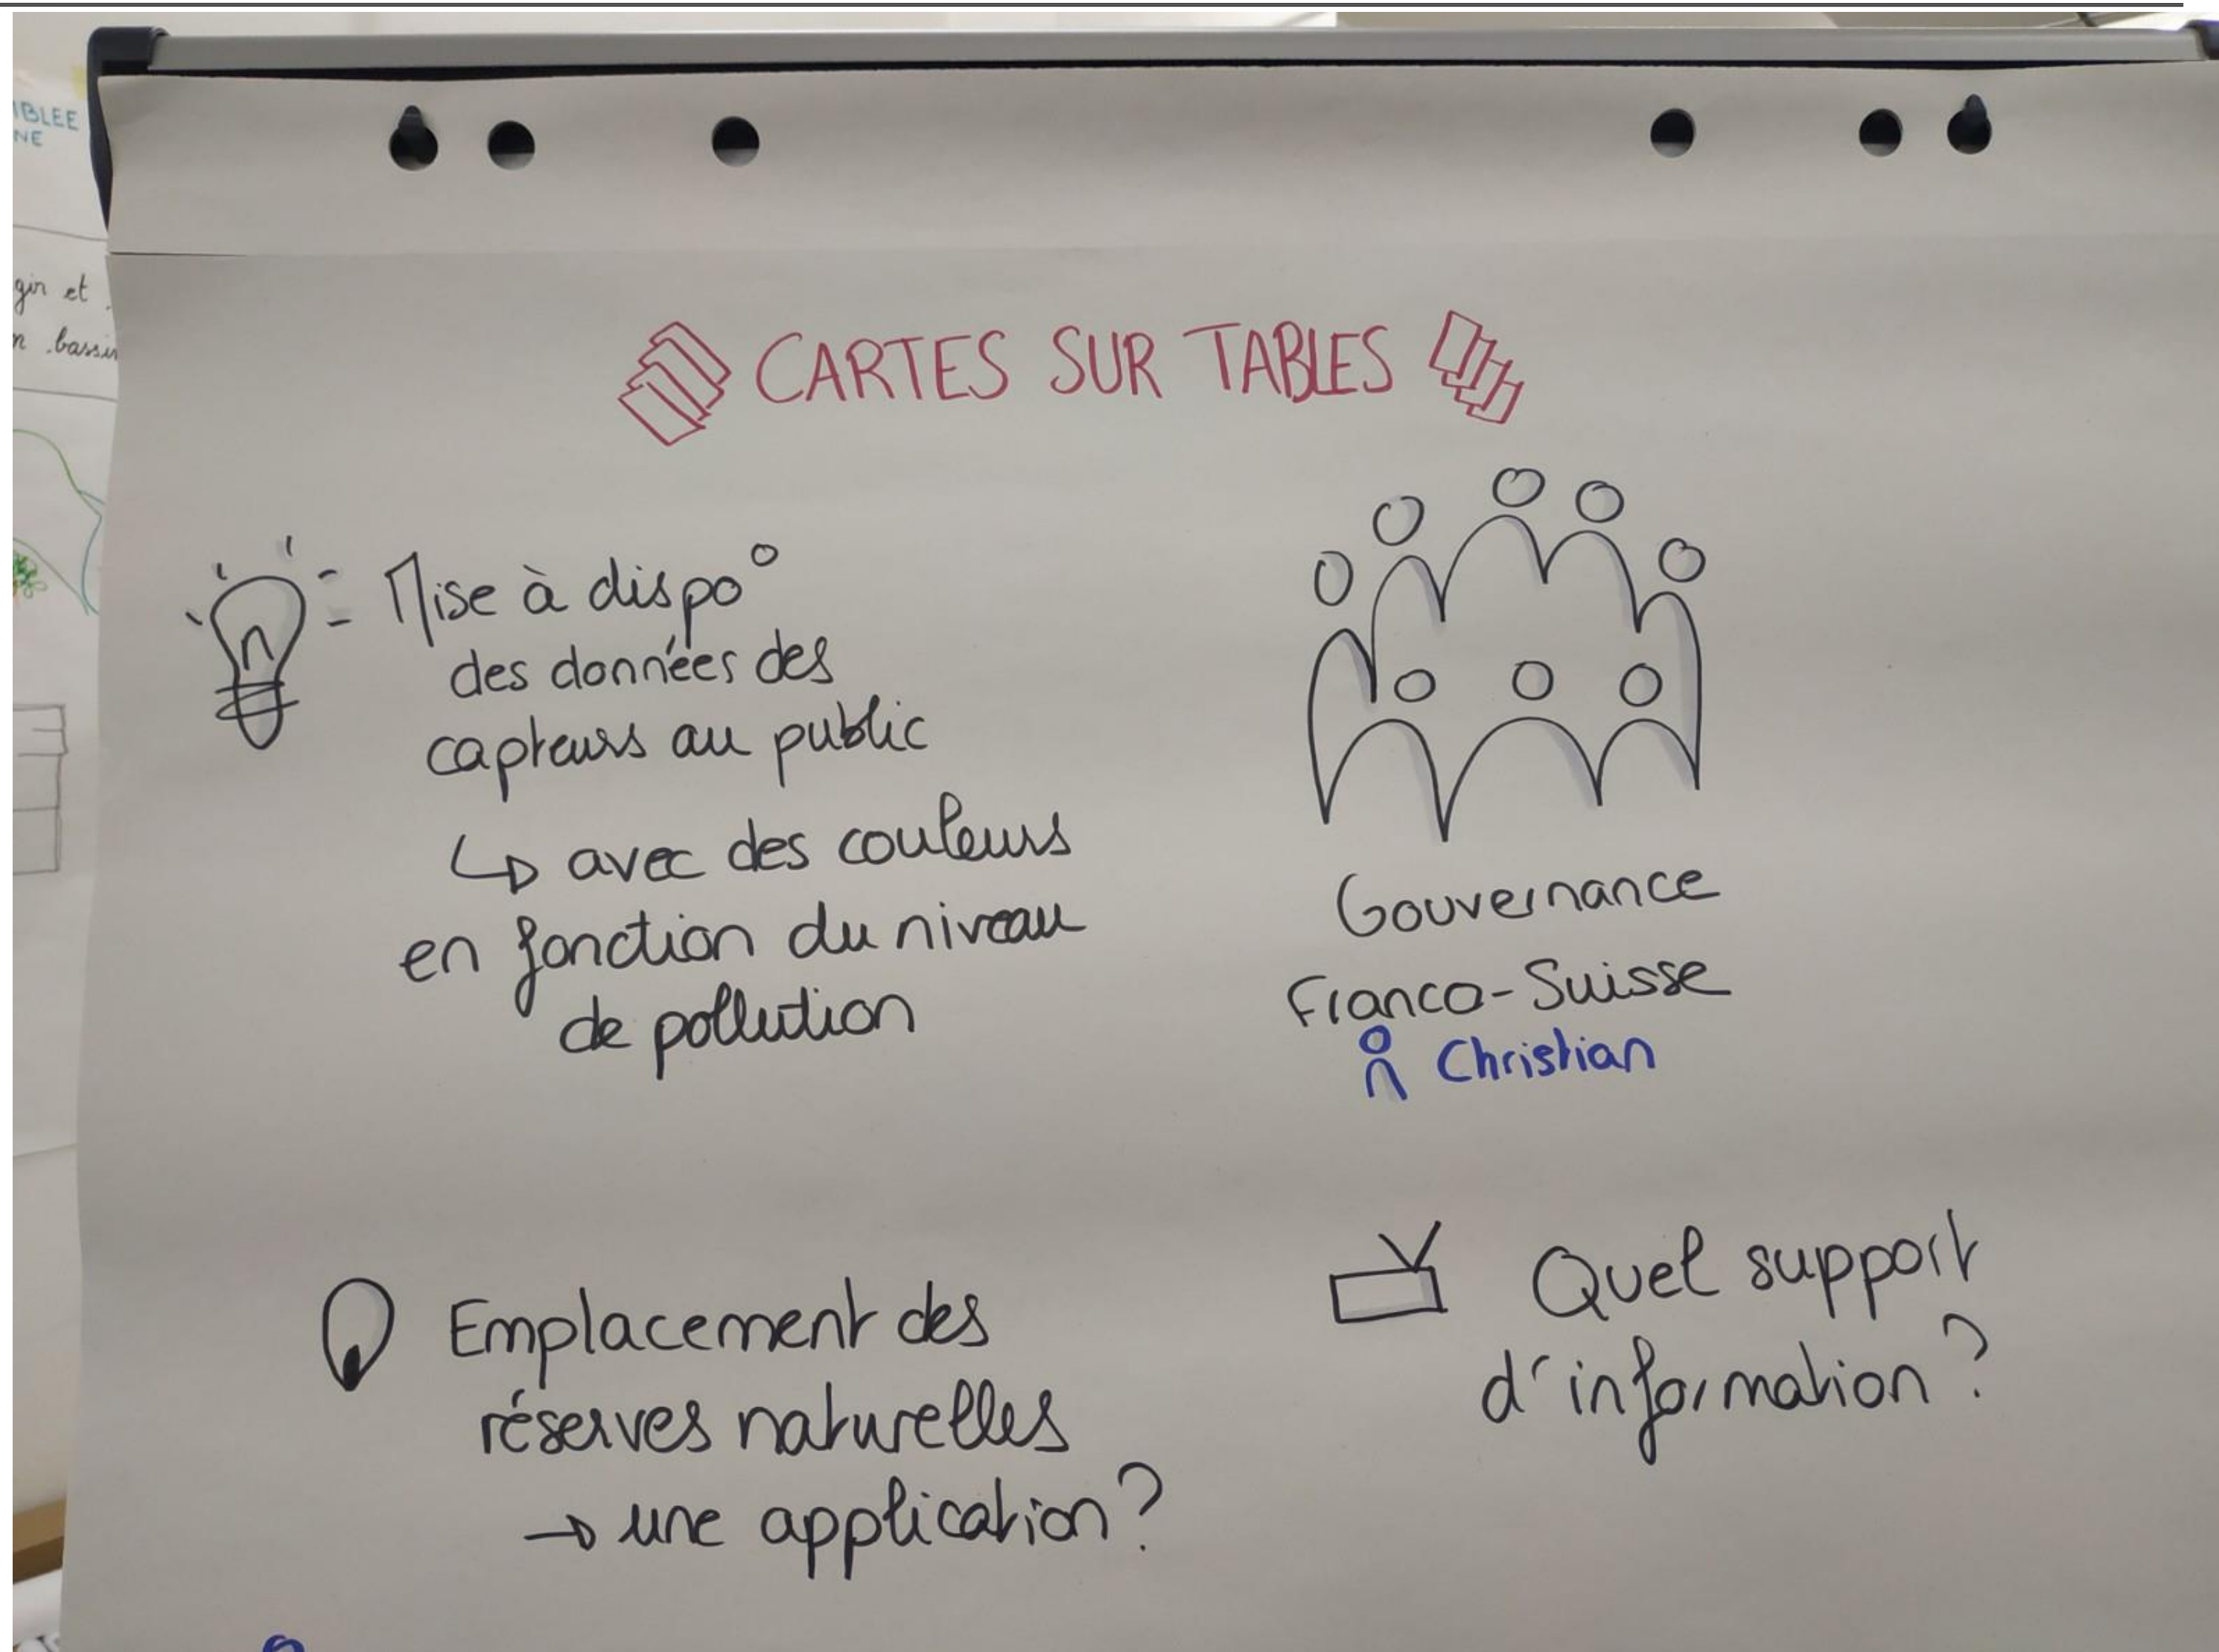 IBLEE
NE
gin et
n bassin
CARTES SUR TABLES
Mise à dispo°
des données des
capteurs au public
↳ avec des couleurs
en fonction du niveau
de pollution
Gouvernance
Franco-Suisse
Christian
Emplacement des
réserves naturelles
→ une application ?
Quel support
d'information ?